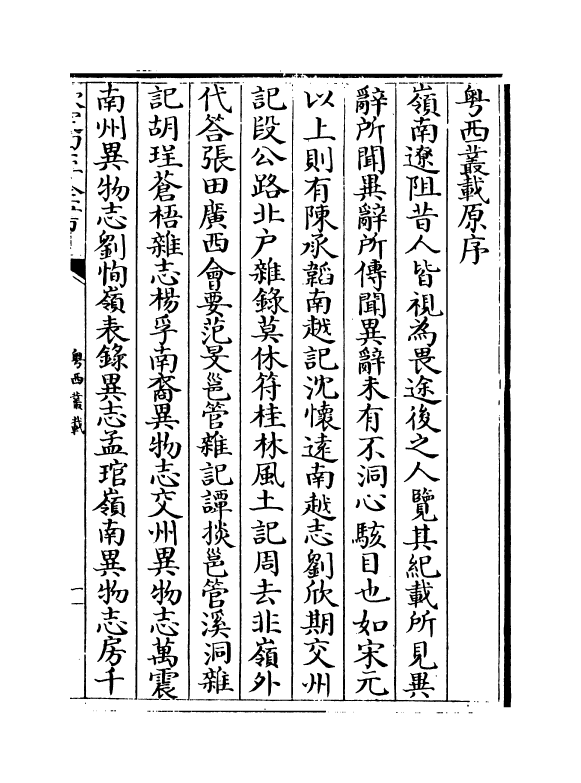 粤西叢載原序
嶺南遼阻昔人皆視為畏途後之人覽其紀載所見異
辭所聞異辭所傳聞異辭未有不洞心駭目也如宋元
以上則有陳承韜南越記沈懷遠南越志劉欣期交州
記段公路北户雜錄莫休符桂林風土記周去非嶺外
代答張田廣西會要范旻邕管雜記譚掞邕管溪洞雜
記胡珵蒼梧雜志楊孚南裔異物志交州異物志萬震
南州異物志劉恂嶺表錄異志孟琯嶺南異物志房千
粤西叢載
一